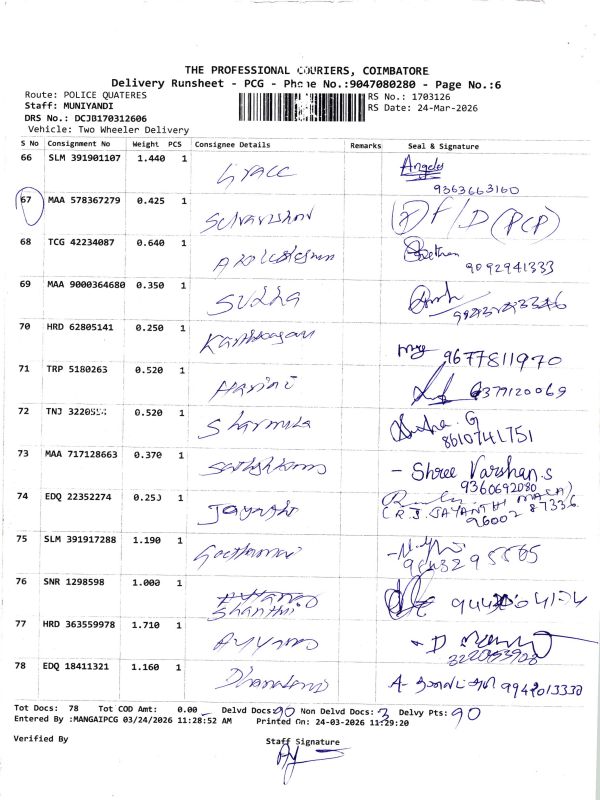 THE PROFESSIONAL COURIERS, COIMBATORE
Delivery Runsheet - PCG - Phone No.:9047080280 - Page No.:6
Route: POLICE QUATERES
RS No.: 1703126
Staff: MUNIYANDI
RS Date: 24-Mar-2026
DRS No.: DCJB170312606
Vehicle: Two Wheeler Delivery
S No Consignment No Weight PCS Consignee Details Remarks Seal & Signature
66 SLM 391901107 1.440 1 Grace Angeles
9363663160
67 MAA 578367279 0.425 1 F/D (PCP)
68 TCG 42234087 0.640 1
9092941333
69 MAA 9000364680 0.350 1 Sudha
70 HRD 62805141 0.250 1
9677811970
71 TRP 5180263 0.520 1 Harini
9377120069
72 TNJ 0.520 1 Sharmila Sudha. G
8610741751
73 MAA 717128663 0.370 1 Sathishkumar - Shree Varshan.s
9360692080
74 EDQ 22352274 1 Jayashri
(R.J. JAYANTHI MALA)
96002 87336
75 SLM 391917288 1.190 1
9843295565
76 SNR 1298598 1.000 1
Shanthi
77 HRD 363559978 1.710 1
78 EDQ 18411321 1.160 1 9942013330
Tot Docs: 78 Tot COD Amt: 0.00 Delvd Docs: 90 Non Delvd Docs: 3 Delvy Pts: 90
Entered By :MANGAIPCG 03/24/2026 11:28:52 AM Printed On: 24-03-2026 11:29:20
Verified By Staff Signature